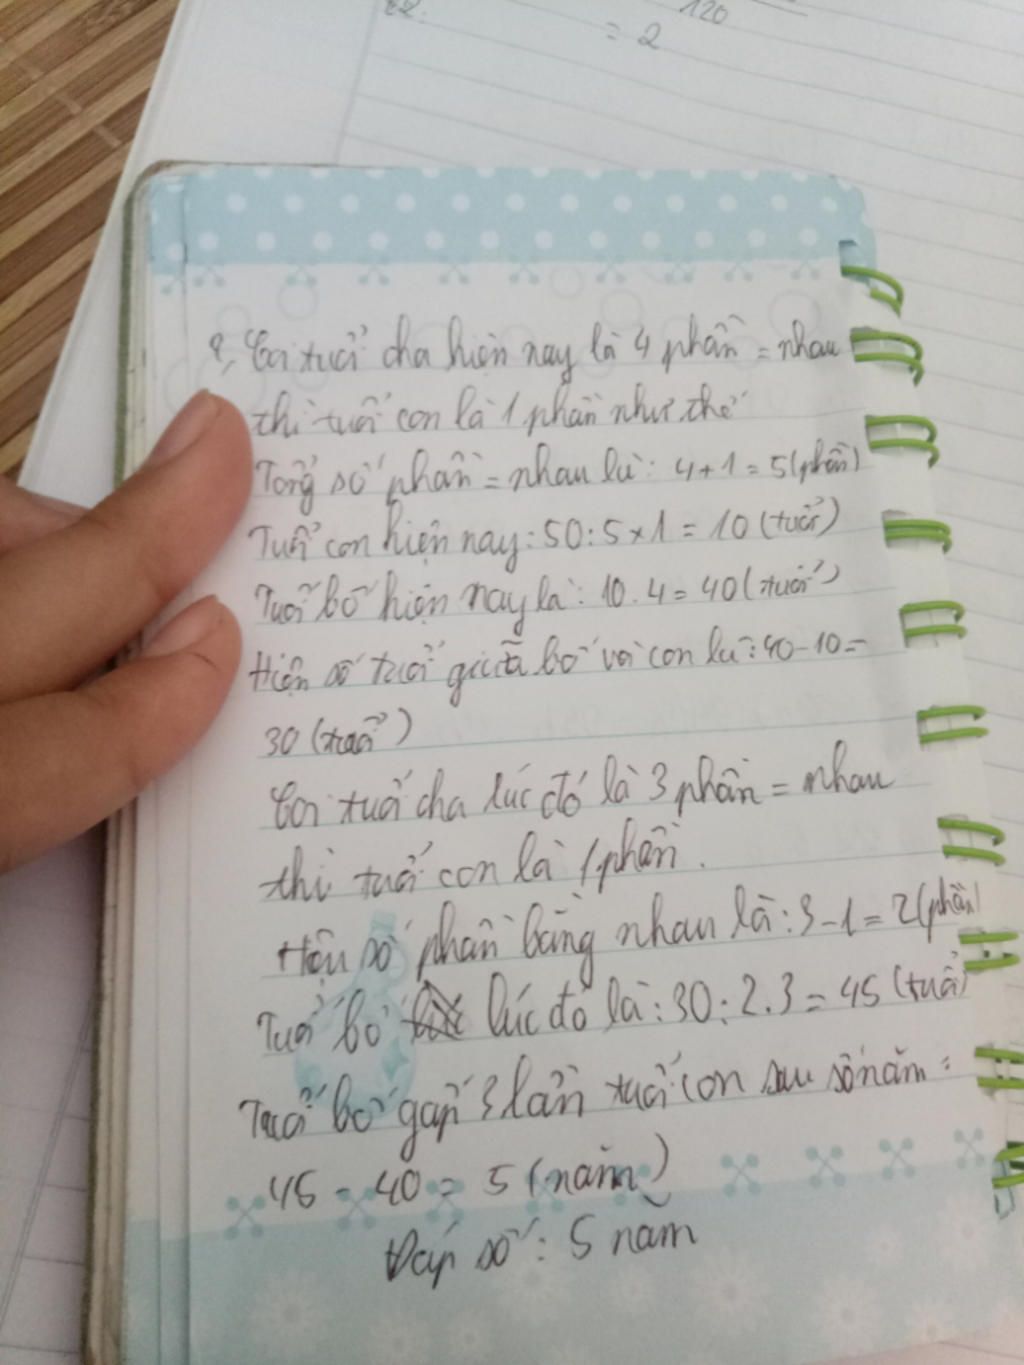 120
= 2
9, Coi tuổi cha hiện nay là 4 phần = nhau
thì tuổi con là 1 phần như thế
Tổng số phần = nhau là: 4+1 = 5 (phần)
Tuổi con hiện nay: 50:5x1 = 10 (tuổi)
Tuổi bố hiện nay là: 10.4 = 40 (tuổi)
Hiện số tuổi giữa bố với con là: 40-10 =
30 (tuổi)
Coi tuổi cha lúc đó là 3 phần = nhau
thì tuổi con là 1 phần.
Hiệu số phần bằng nhau là: 3-1 = 2 (phần)
Tuổi bố lúc đó là: 30:2.3 = 45 (tuổi)
Tuổi bố gấp 3 lần tuổi con sau số năm:
45 - 40 = 5 (năm)
Đáp số: 5 năm